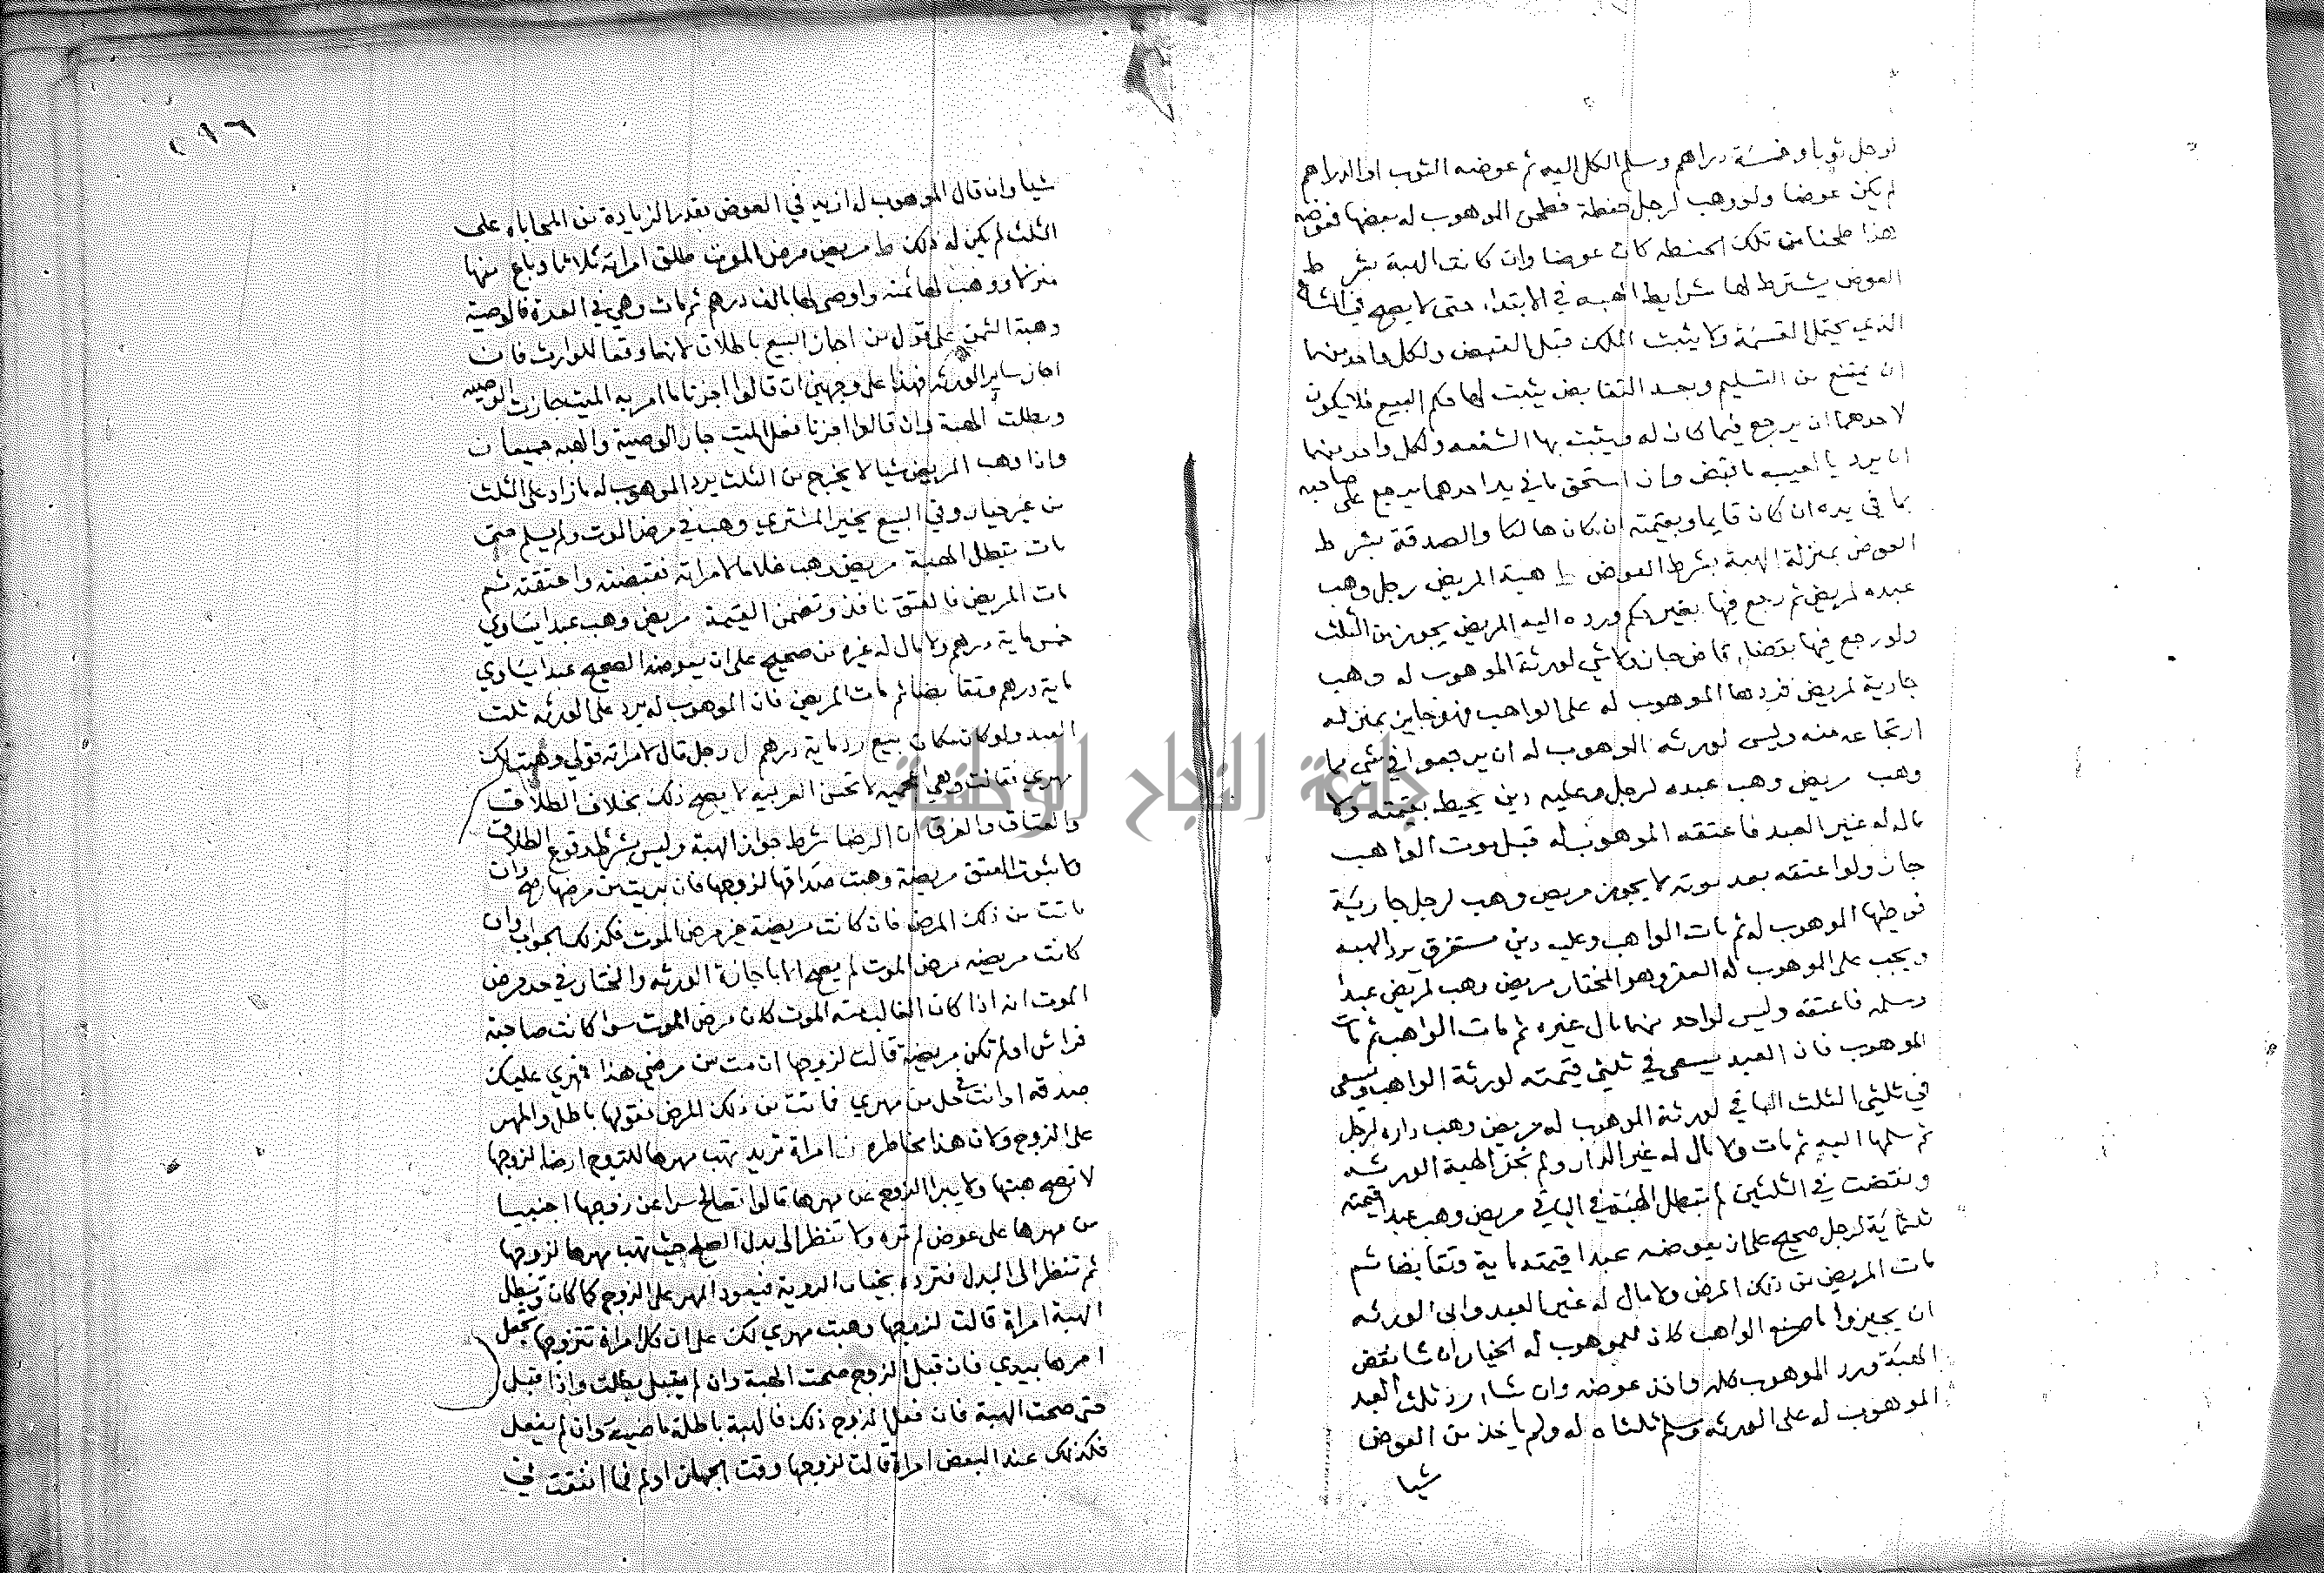 لرجل ثوبا وخمسة دراهم وسلم الكل اليه ثم عوضه الثوب او الدراهم
لم يكن عوضا ولو وهب لرجل حنطة فطحن الموهوب له بعضها فعوضه
هذا طحنا من تلك الحنطه كان عوضا وان كانت الهبة بشرط
العوض يشترط لها شرايط الهبه في الابتداء حتى لا يصح في المشاع
الذي يحتمل القسمة ولا يثبت الملك قبل القبض ولكل واحد منهما
ان يمتنع من التسليم وبعد التقابض يثبت لها حكم البيع فلا يكون
لاحدهما ان يرجع فيما كان له ويثبت بها الشفعه ولكل واحد منهما
ان يرد بالعيب ما قبض وان استحق ما في يد احدهما يرجع على صاحبه
بما في يده ان كان قايما وبقيمته ان كان هالكا والصدقة بشرط
العوض بمنزلة الهبة بشرط العوض ط هبة المريض رجل وهب
عبده لمريض ثم رجع فيها بغير حكم ورده اليه المريض يجوز من الثلث
ولو رجع فيها بقضاء قاض جاز ولا شي لورثة الموهوب له وهب
جارية لمريض فردها الموهوب له على الواهب فهو جايز بمنزله
ارتجاعه منه وليس لورثه الموهوب له ان يرجعوا في شي مما
وهب مريض وهب عبده لرجل وعليه دين يحيط بقيمته ولا
مال له غير العبد فاعتقه الموهوب له قبل موت الواهب
جاز ولو اعتقه بعد موته لا يجوز مريض وهب لرجل جارية
فوطئها الموهوب له ثم مات الواهب وعليه دين مستغرق يرد الهبه
ويجب على الموهوب له العقر وهو المختار مريض وهب لمريض عبدا
وسلمه فاعتقه وليس لواحد منهما مال غيره ثم مات الواهب ثم مات
الموهوب فان العبد يسعى في ثلثي قيمته لورثة الواهب ويسعى
في ثلثي الثلث الباقي لورثة الموهوب له مريض وهب داره لرجل
ثم سلمها اليه ثم مات ولا مال له غير الدار ولم تجز الهبة الورثه
ونقضت في الثلثين لم تبطل الهبة في الباقي مريض وهب عبدا قيمته
ثلثماية لرجل صحيح على ان يعوضه عبدا قيمته ماية وتقابضا ثم
مات المريض من ذلك المرض ولا مال له غير العبد وابى الورثه
ان يجيزوا ما صنع الواهب كان للموهوب له الخيار ان شا نقض
الهبة ورد الموهوب كله واخذ عوضه وان شا رد ثلث العبد
الموهوب له على الورثه وسلم ثلثاه له ولم ياخذ من العوض
شيا
١٩٦
شيا وان قال الموهوب له ازيد في العوض بقدر الزيادة من المحاباه على
الثلث لم يكن له ذلك ط مريض مرض الموت طلق امراته ثلاثا وباع منها
منزلا ووهب لها ثمنه واوصى لها بالف درهم ثم مات وهي في العدة فالوصية
وهبة الثمن على قول من اجاز البيع باطلان لانهما وقعا للوارث فان
اجاز ساير الورثه فهذا على وجهين ان قالوا اجزنا ما امر به الميت جازت الوصيه
وبطلت الهبة وان قالوا اجزنا فعل الميت جاز الوصية والهبه جميعا ن
واذا وهب المريض شيا لا يخرج من الثلث يرد الموهوب له ما زاد على الثلث
من غير خيار وفي البيع يخير المشتري وهب في مرض الموت ولم يسلم حتى
مات تبطل الهبة مريض وهب غلاما لامراته فقبضته واعتقته ثم
مات المريض فالعتق نافذ وتضمن القيمة مريض وهب عبدا يساوي
خمسماية درهم ولا مال له غيره من صحيح على ان يعوضه الصحيح عبدا يساوي
ماية درهم وتقابضا ثم مات المريض فان الموهوب له يرد على الورثه ثلث
العبد ولو كان مكان بيع رد ماية درهم ل رجل قال لامراته قولي وهبت لك
مهري فقالت وهي اعجميه لا تحسن العربيه لا يصح ذلك بخلاف الطلاق
والعتاق والفرق ان الرضا شرط جواز الهبة وليس بشرط لوقوع الطلاق
ولا ثبوت العتق مريضة وهبت صداقها لزوجها فان بريت من مرضها صح وان
ماتت من ذلك المرض فان كانت مريضة غير مرض الموت فكذلك الجواب وان
كانت مريضه مرض الموت لم يصح الا باجازة الورثه والمختار في حد مرض
الموت انه اذا كان الغالب منه الموت كان مرض الموت سوا كانت صاحبة
فراش او لم تكن مريضة قالت لزوجها ان مت من مرضي هذا فمهري عليك
صدقه او انت في حل من مهري فماتت من ذلك المرض فقولها باطل والمهر
على الزوج ولان هذا مخاطره ن امراة تريد تهب مهرها للزوج ارضا لزوجها
لا تصح هبتها ولا يبرا الزوج من مهرها قالوا تصالح سرا عن زوجها اجنبيا
من مهرها على عوض لم تره ولا تنظر الى بدل الصلح حيث تهب مهرها لزوجها
ثم تنظر الى البدل فترده بخيار الروية فيعود المهر على الزوج كما كان وتبطل
الهبة امراة قالت لزوجها وهبت مهري لك على ان كل امراة تتزوجها تجعل
امرها بيدي فان قبل الزوج صحت الهبة وان لم يقبل بطلت واذا قبل
حتى صحت الهبة فان فعل الزوج ذلك فالهبة باطلة ماضية وان لم يفعل
فكذلك عند البعض امراة قالت لزوجها وقت الجهاز او لم فما انفقت في
جامعة النجاح الوطنية